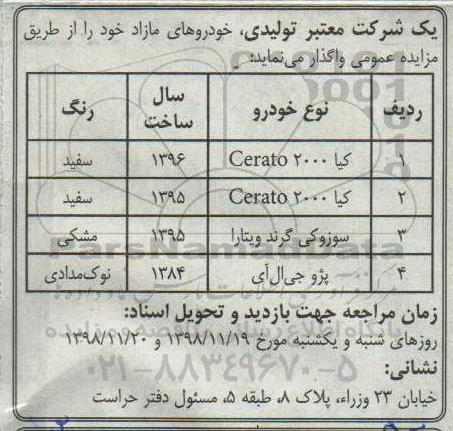 یک شرکت معتبر تولیدی، خودروهای مازاد خود را از طریق
مزایده عمومی واگذار می‌نماید:
ردیف نوع خودرو سال ساخت رنگ
۱ کیا ۲۰۰۰ Cerato ۱۳۹۶ سفید
۲ کیا ۲۰۰۰ Cerato ۱۳۹۵ سفید
۳ سوزوکی گرند ویتارا ۱۳۹۵ مشکی
۴ پژو جی‌ال‌آی ۱۳۸۴ نوک‌مدادی
زمان مراجعه جهت بازدید و تحویل اسناد:
روزهای شنبه و یکشنبه مورخ ۱۳۹۸/۱۱/۱۹ و ۱۳۹۸/۱۱/۲۰
۰۲۱-۸۸۳۴۹۶۷۰-۵
نشانی:
خیابان ۲۳ وزراء، پلاک ۸، طبقه ۵، مسئول دفتر حراست
ParsNamadData